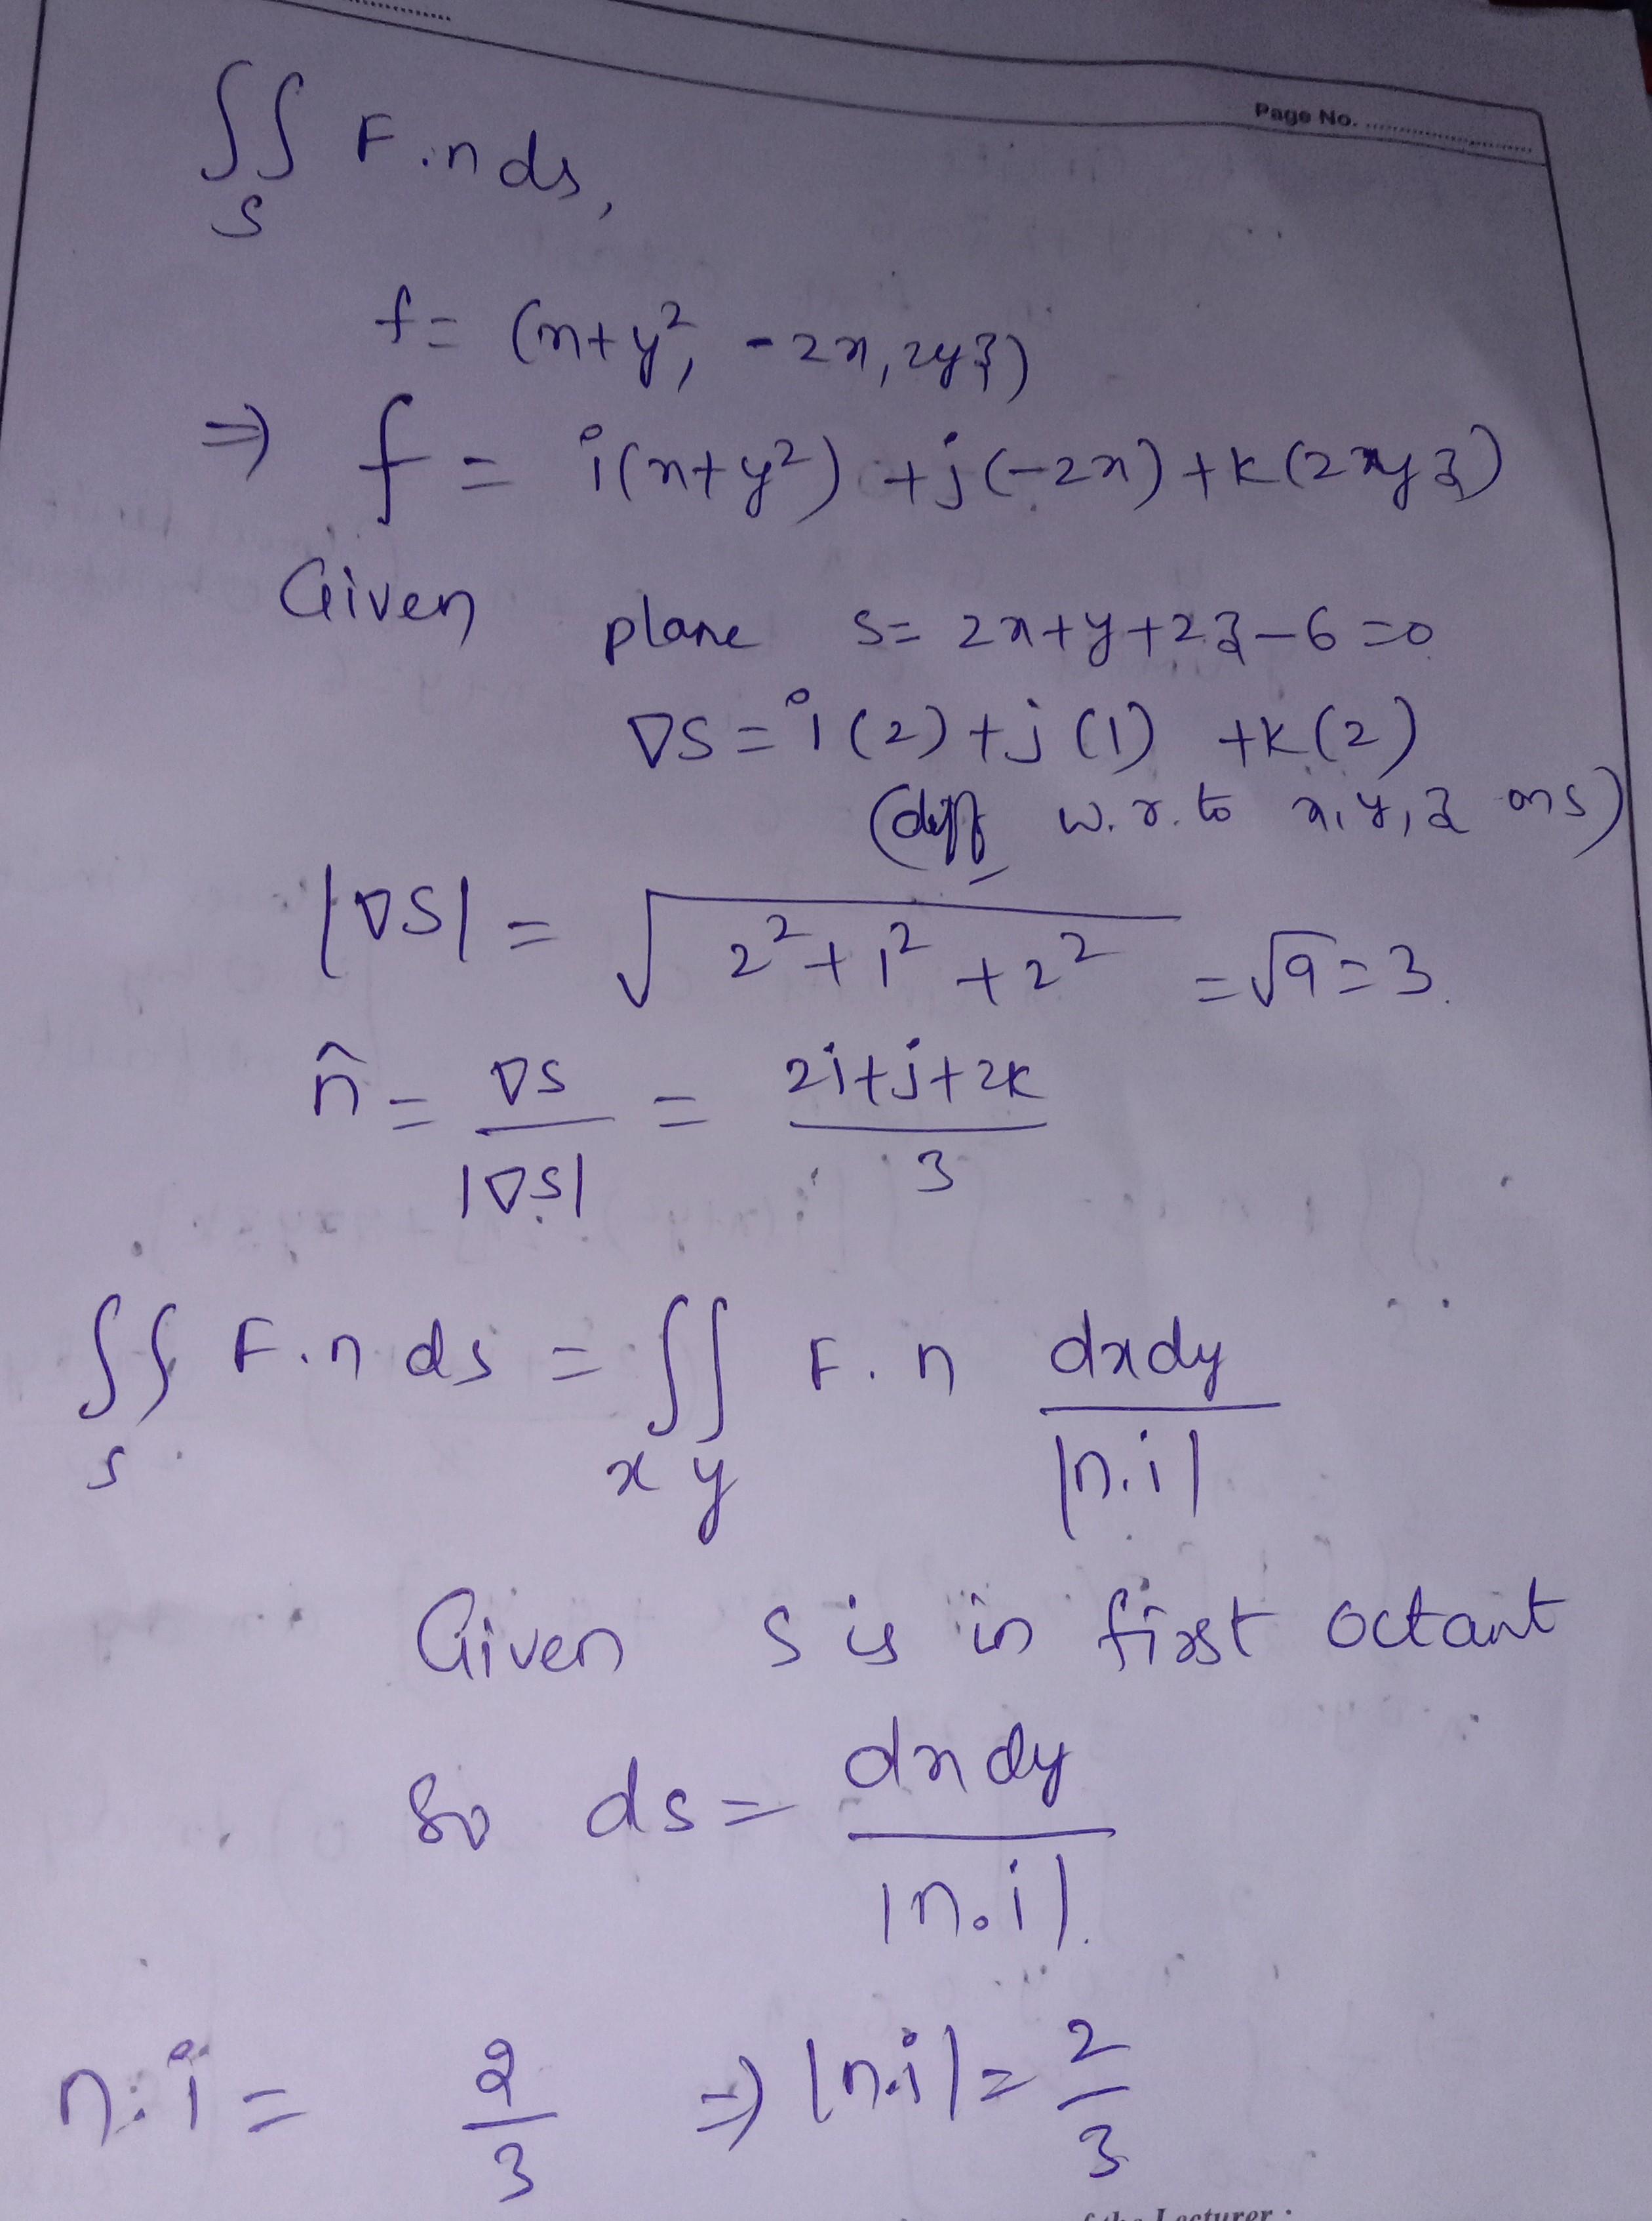 Page No. ..........
∫∫ F.n ds,
S
f = (x+y², -2x, 2yz)
⇒ f = i(x+y²) + j(-2x) + k(2xyz)
Given plane S = 2x+y+2z-6=0
∇S = i(2) + j(1) + k(2)
(diff w.r.to x, y, z on s)
|∇S| = √2²+1²+2² = √9 = 3.
n̂ = ∇S/|∇S| = 2i+j+2k/3
∫∫ F.n ds = ∫∫ F.n dxdy/|n.i|
S x y
Given S is in first octant
So ds = dxdy/|n.i|.
n.i = 2/3 ⇒ |n.i| = 2/3
Lecturer :